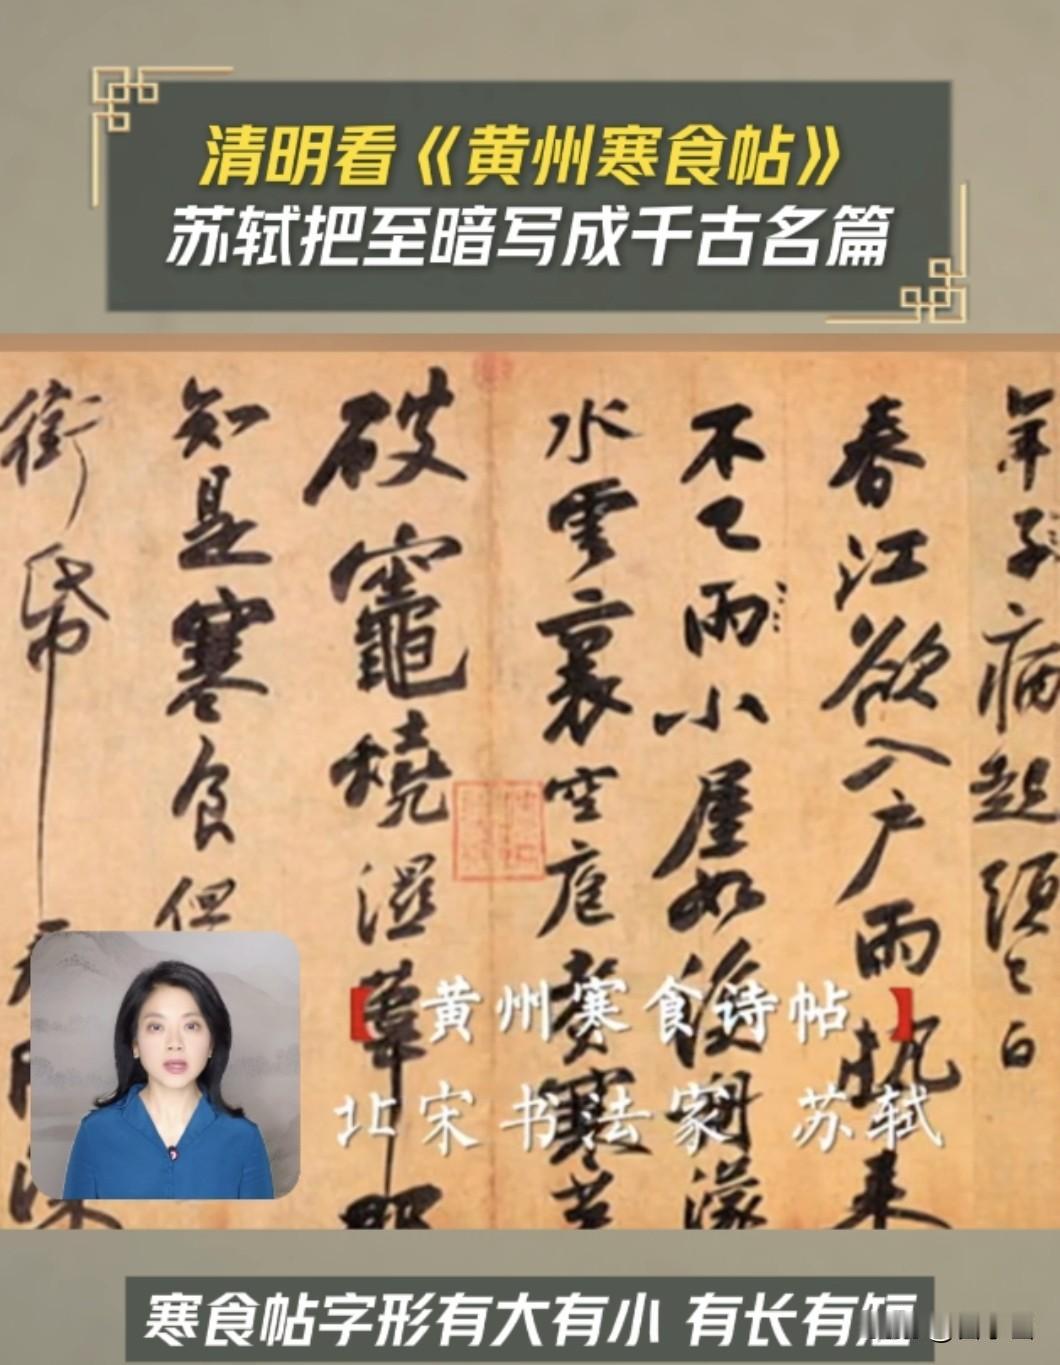 清明看《黄州寒食帖》
苏轼把至暗写成千古名篇
年子病起須已白
春江欲入戶雨勢来
不已雨小屋如漁舟濛
水雲裏空庖煑寒菜
破竈燒濕葦那
知是寒食但
銜帋
【黄州寒食诗帖】
北宋书法家 苏轼
寒食帖字形有大有小 有长有短